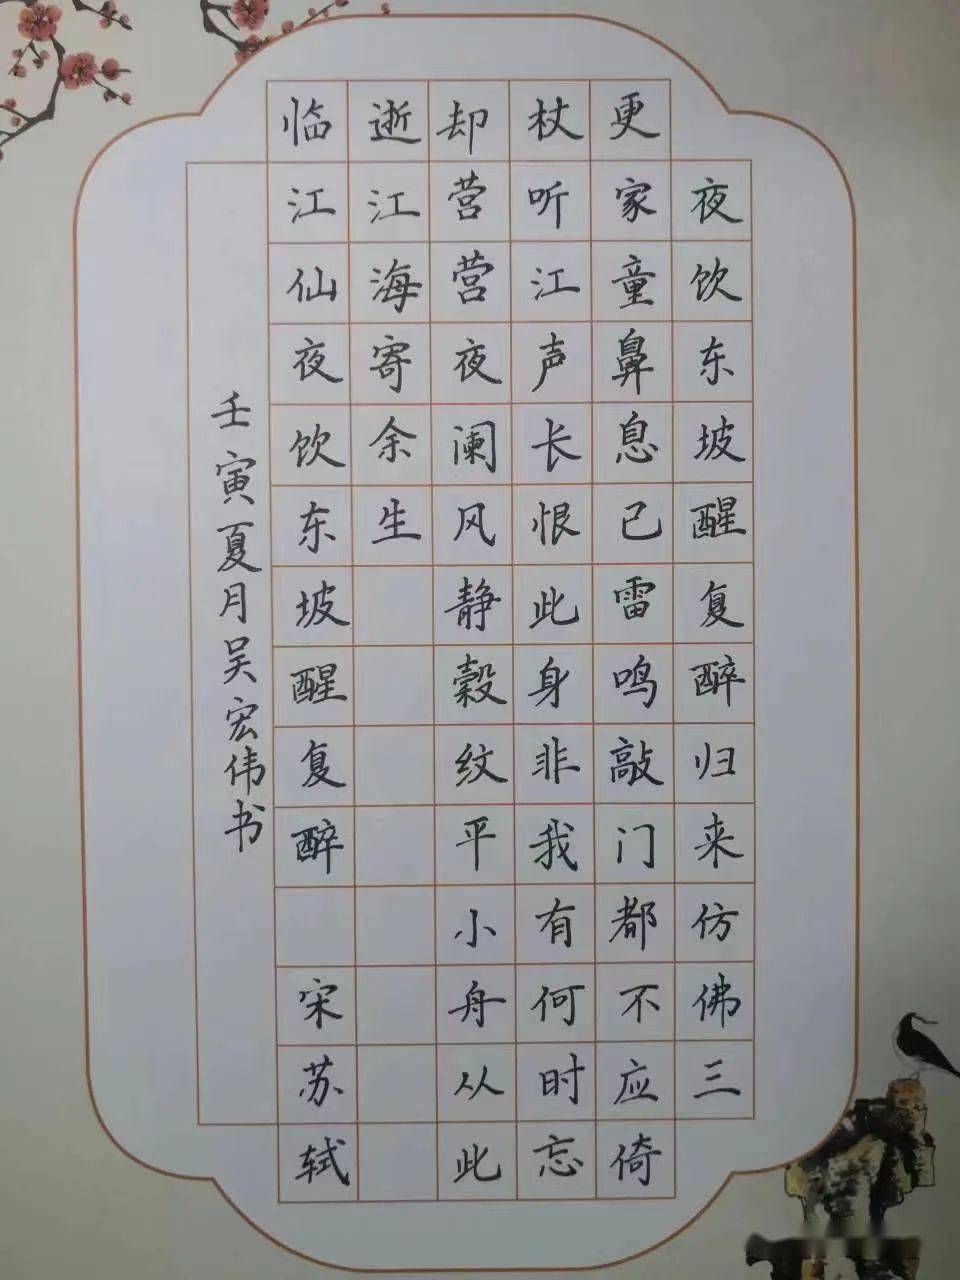 夜饮东坡醒复醉归来仿佛三
更家童鼻息已雷鸣敲门都不应倚
杖听江声长恨此身非我有何时忘
却营营夜阑风静縠纹平小舟从此
逝江海寄余生
临江仙夜饮东坡醒复醉 宋苏轼
壬寅夏月吴宏伟书